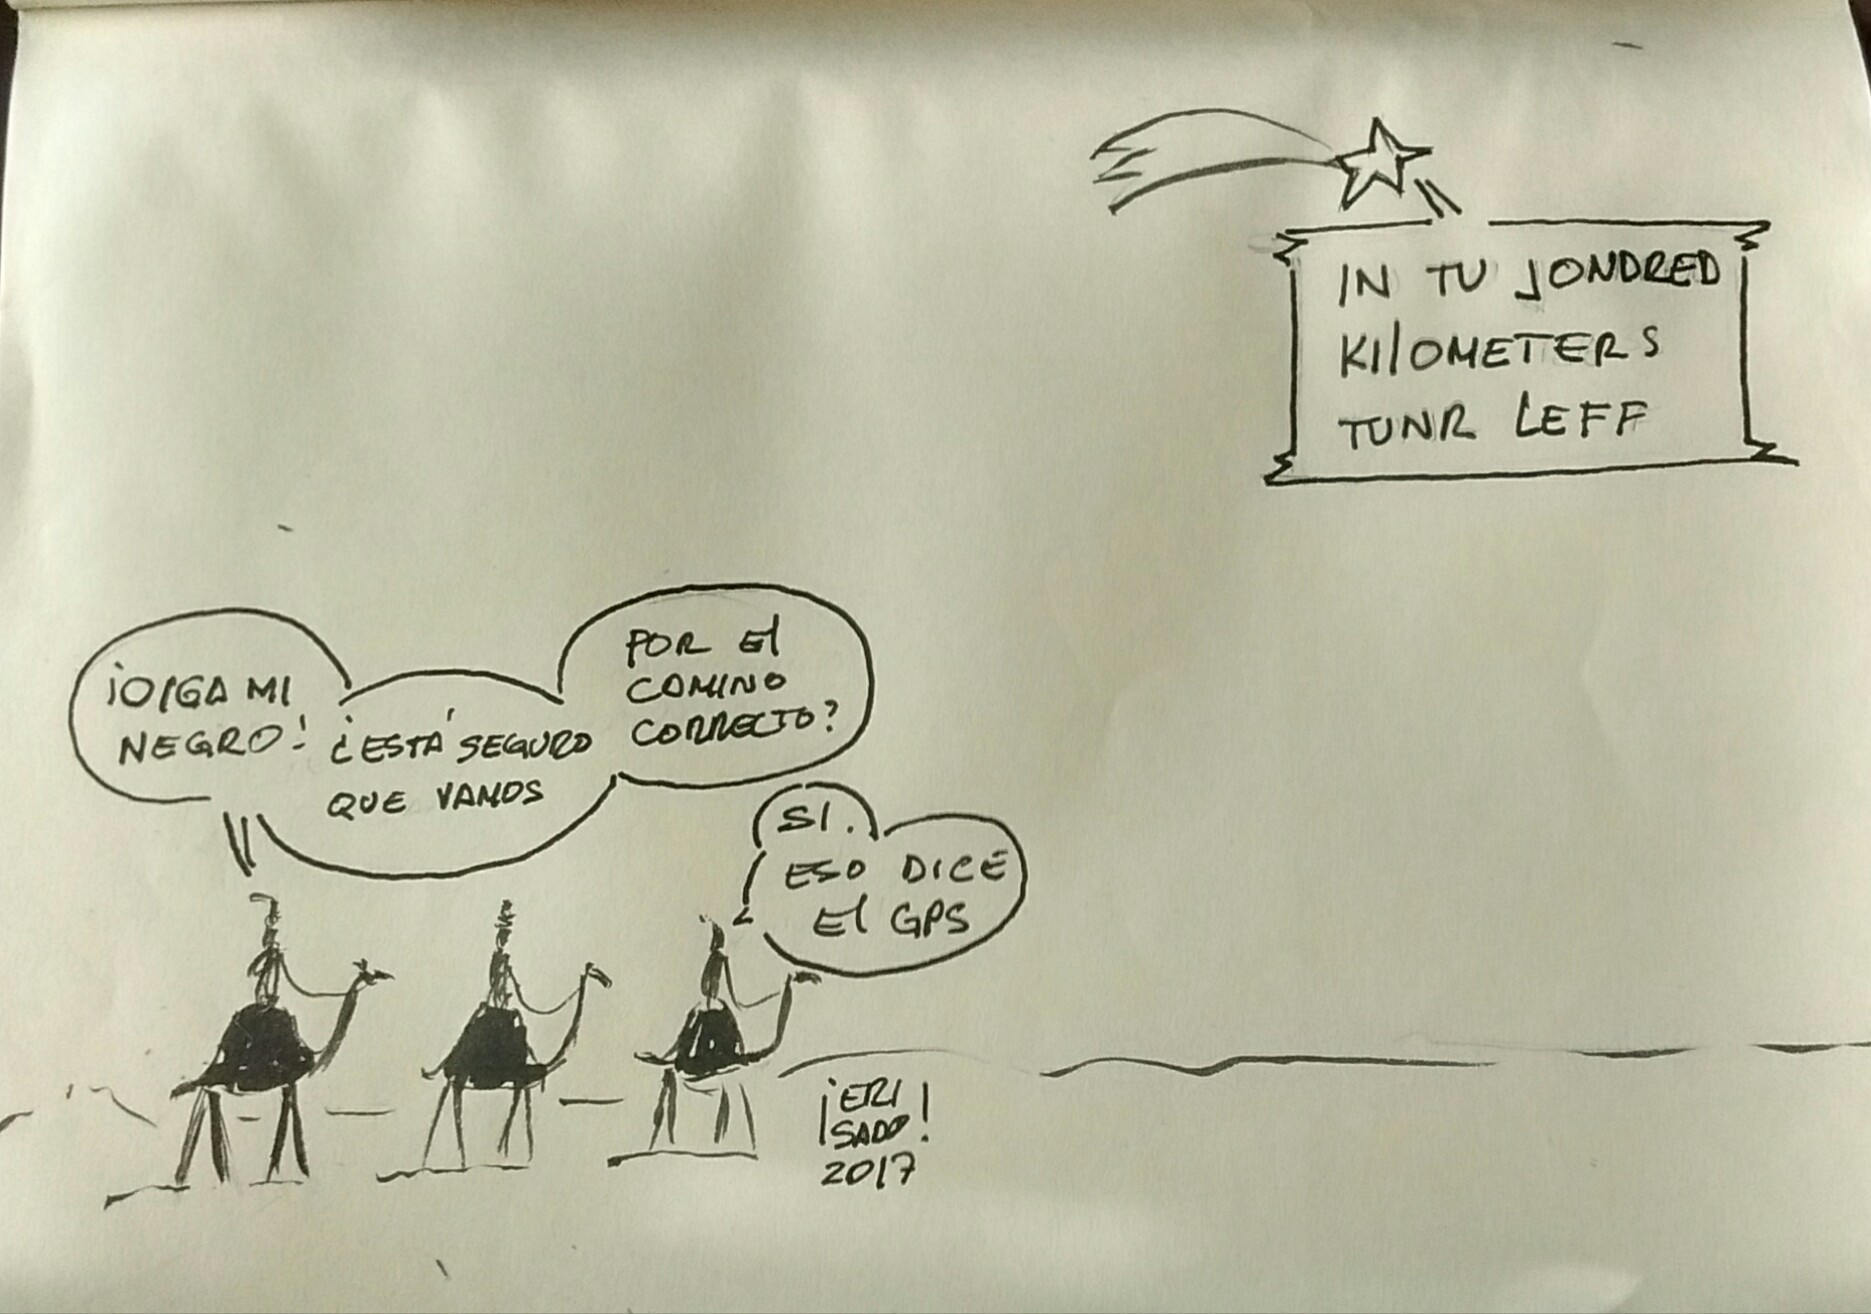 IN TU JONDRED
KILOMETERS
TUNR LEFF
¡OIGA MI
NEGRO!
¿ESTÁ SEGURO
QUE VAMOS
POR El
CAMINO
CORRECTO?
SI.
ESO DICE
El GPS
¡ERI
SADO!
2017